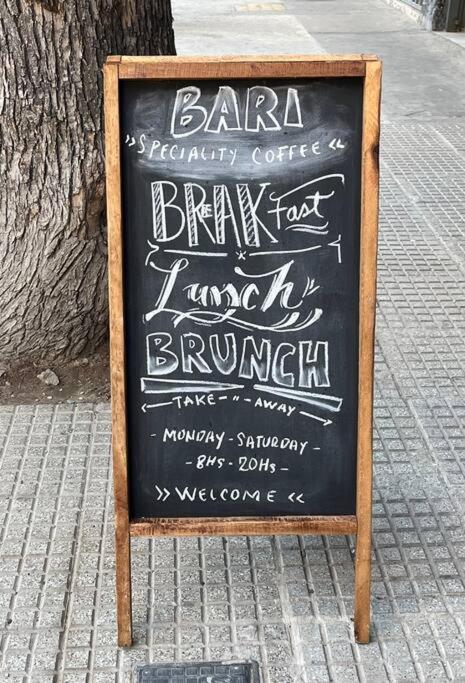 BARI
»SPECIALITY COFFEE«
BREAKfast
Lunch
BRUNCH
TAKE-"-AWAY
- MONDAY - SATURDAY -
- 8Hs - 20Hs -
» WELCOME «